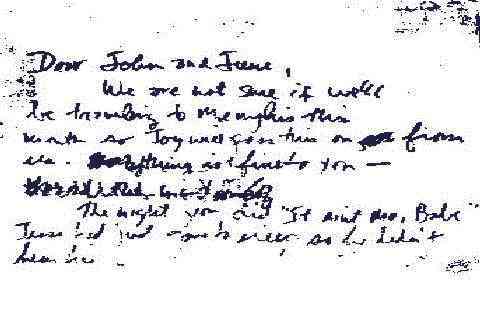 Dear John and Irene,
We are not sure if we'll
be traveling to Memphis this
month so Joy will pass this on from
is to you —
The night you did "It ain't me, Babe"
Jesse had just to sleep so he didn't
hear